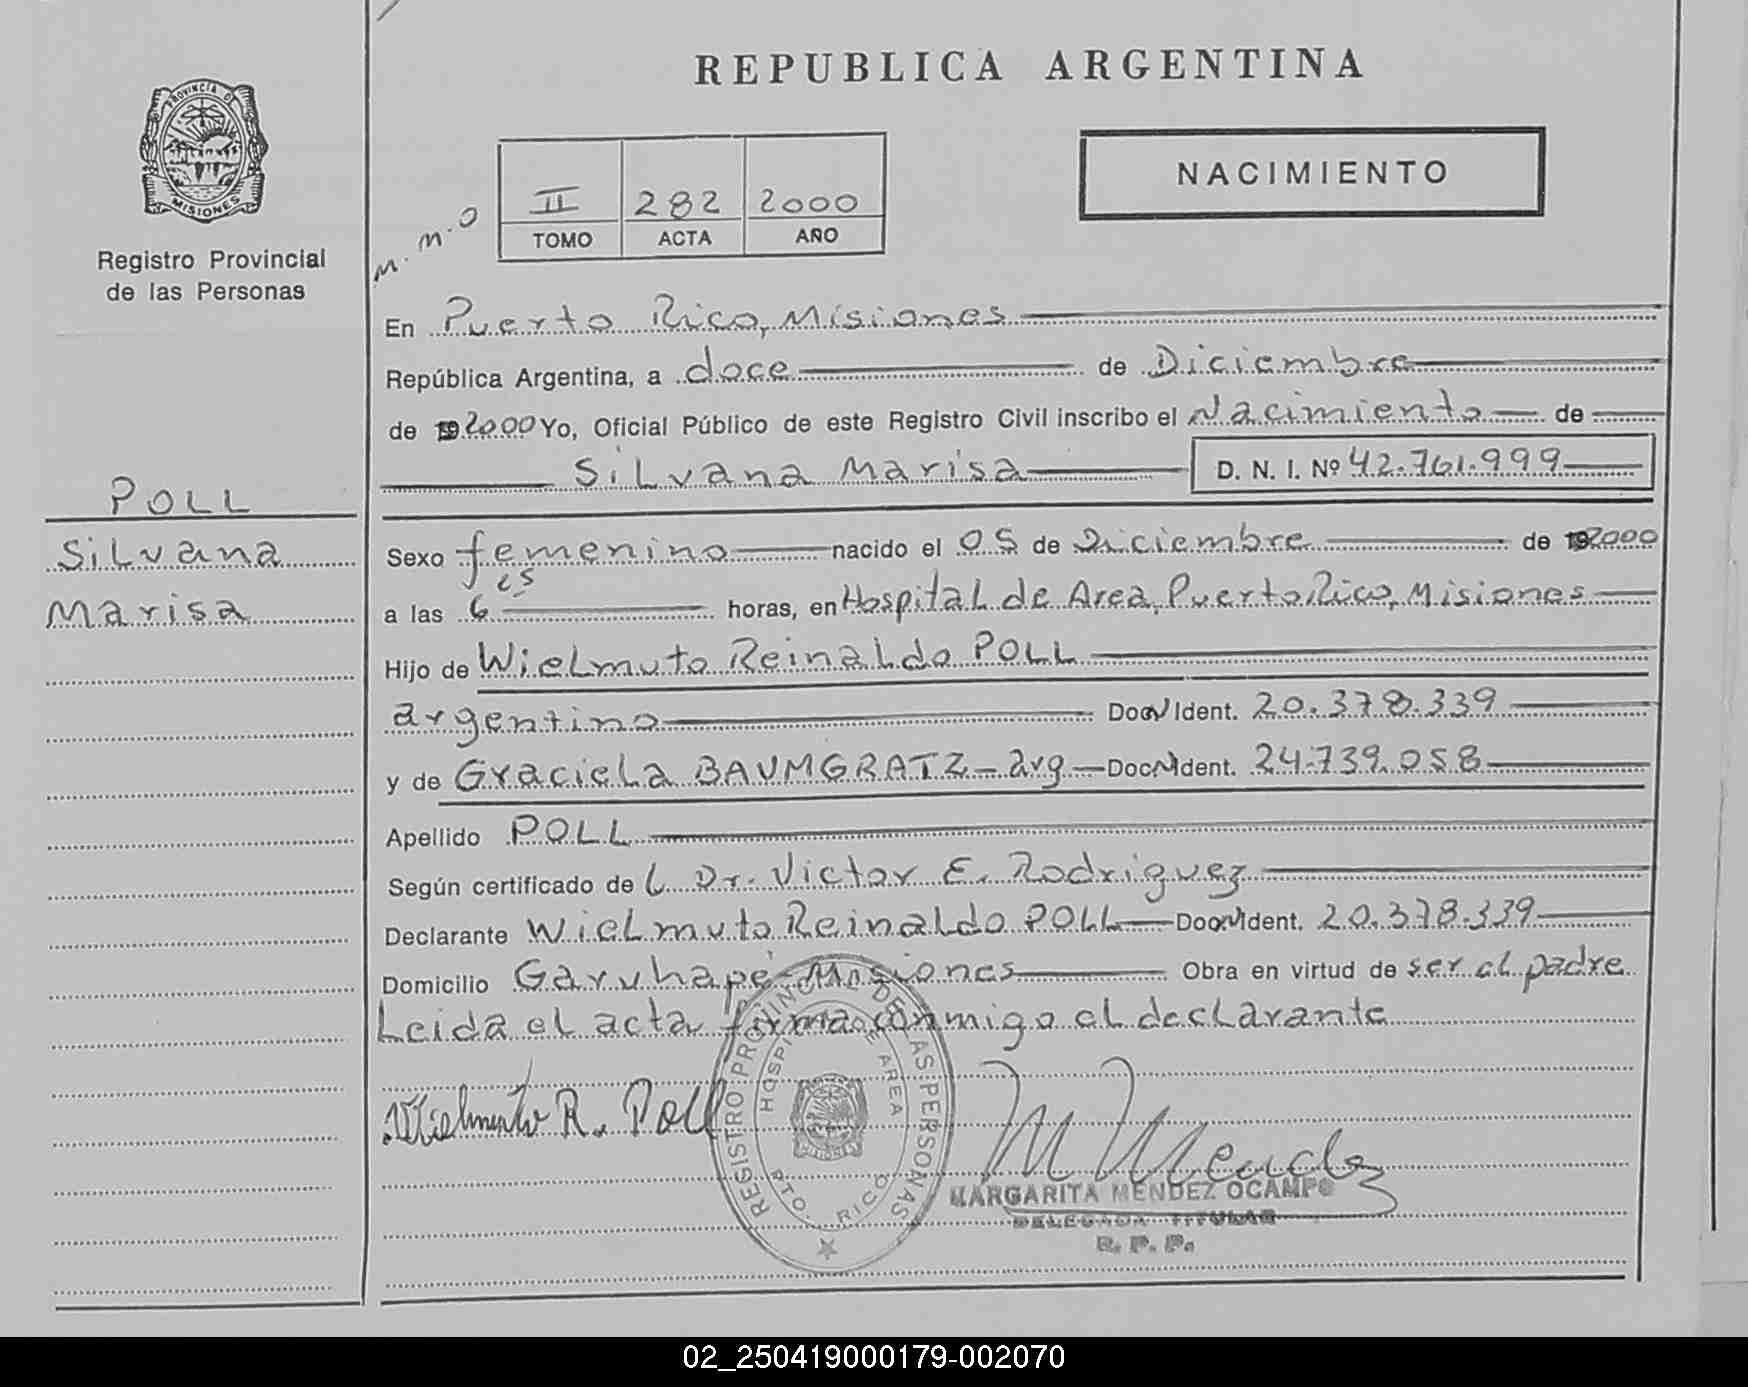 REPUBLICA ARGENTINA
PROVINCIA DE
MISIONES
Registro Provincial
de las Personas
NACIMIENTO
m. m. o
II 282 2000
TOMO ACTA AÑO
En Puerto Rico, Misiones
República Argentina, a doce de Diciembre
de 2000 Yo, Oficial Público de este Registro Civil inscribo el Nacimiento de
Silvana Marisa D. N. I. Nº 42.761.999
POLL
Silvana
Marisa
Sexo femenino nacido el 05 de Diciembre de 2000
a las 6 15 horas, en Hospital de Area, Puerto Rico, Misiones
Hijo de Wielmuto Reinaldo POLL
argentino Doc. Ident. 20.378.339
y de Graciela BAUMGRATZ - arg - Doc. Ident. 24.739.058
Apellido POLL
Según certificado de L Dr. Victor E. Rodriguez
Declarante Wielmuto Reinaldo POLL Doc. Ident. 20.378.339
Domicilio Garuhapé - Misiones Obra en virtud de ser el padre
Leida el acta firma conmigo el declarante
Wielmuto R. Poll
REGISTRO PROVINCIAL DE LAS PERSONAS
HOSPITAL DE AREA
PTO. RICO
MISIONES
M Mendez
MARGARITA MENDEZ OCAMPO
DELEGADA TITULAR
R. P. P.
02_250419000179-002070